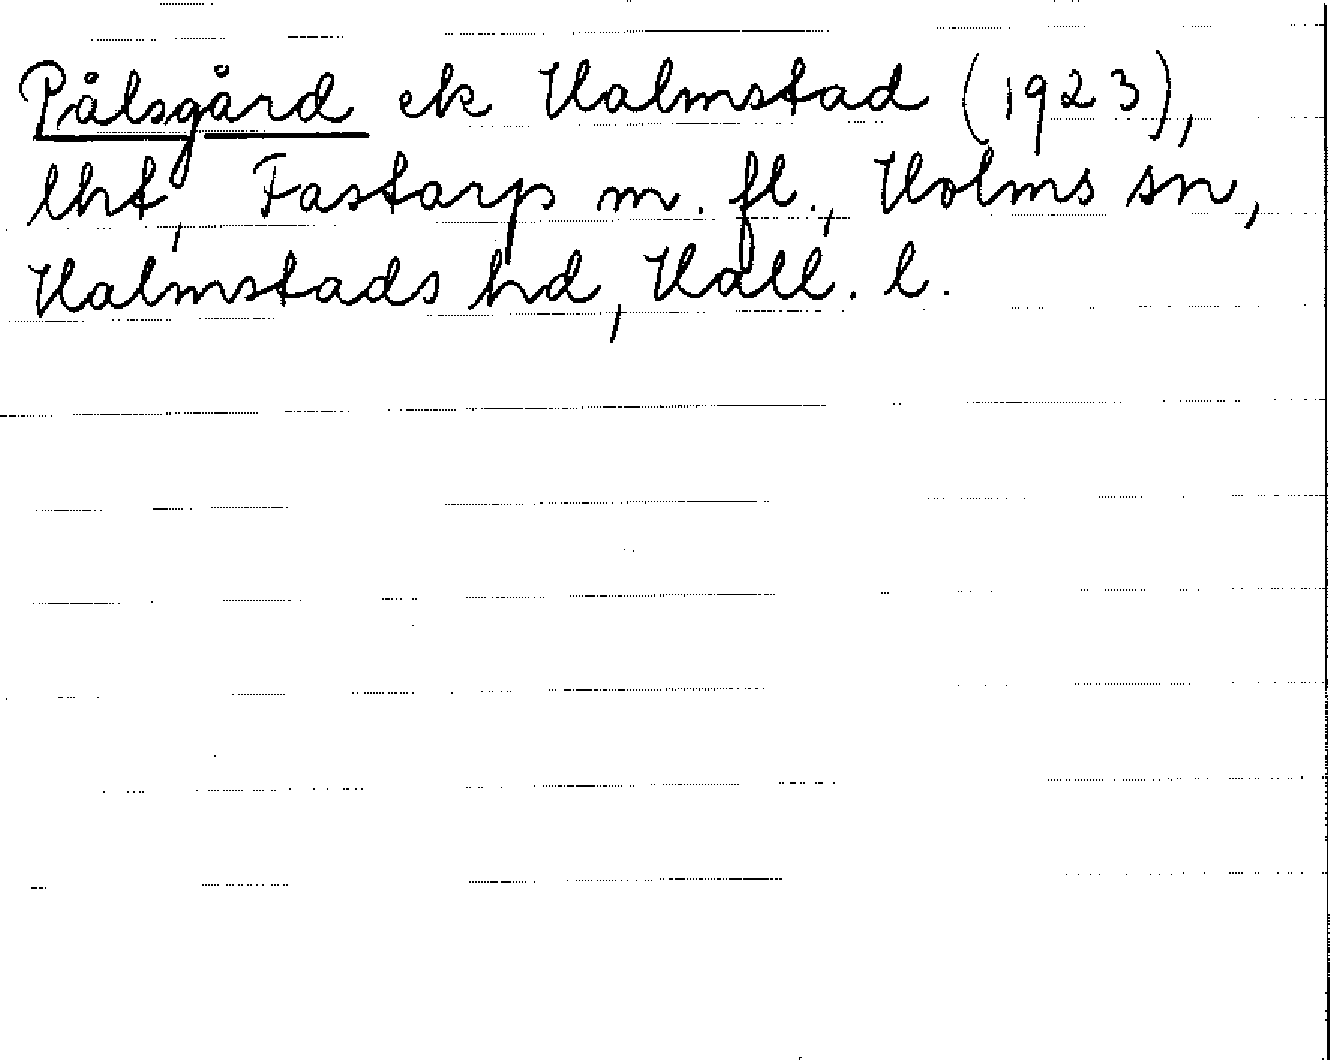 Pålsgård ek Halmstad (1923),
lht, Fastarp m. fl., Holms sn,
Halmstads hd, Hall. l.